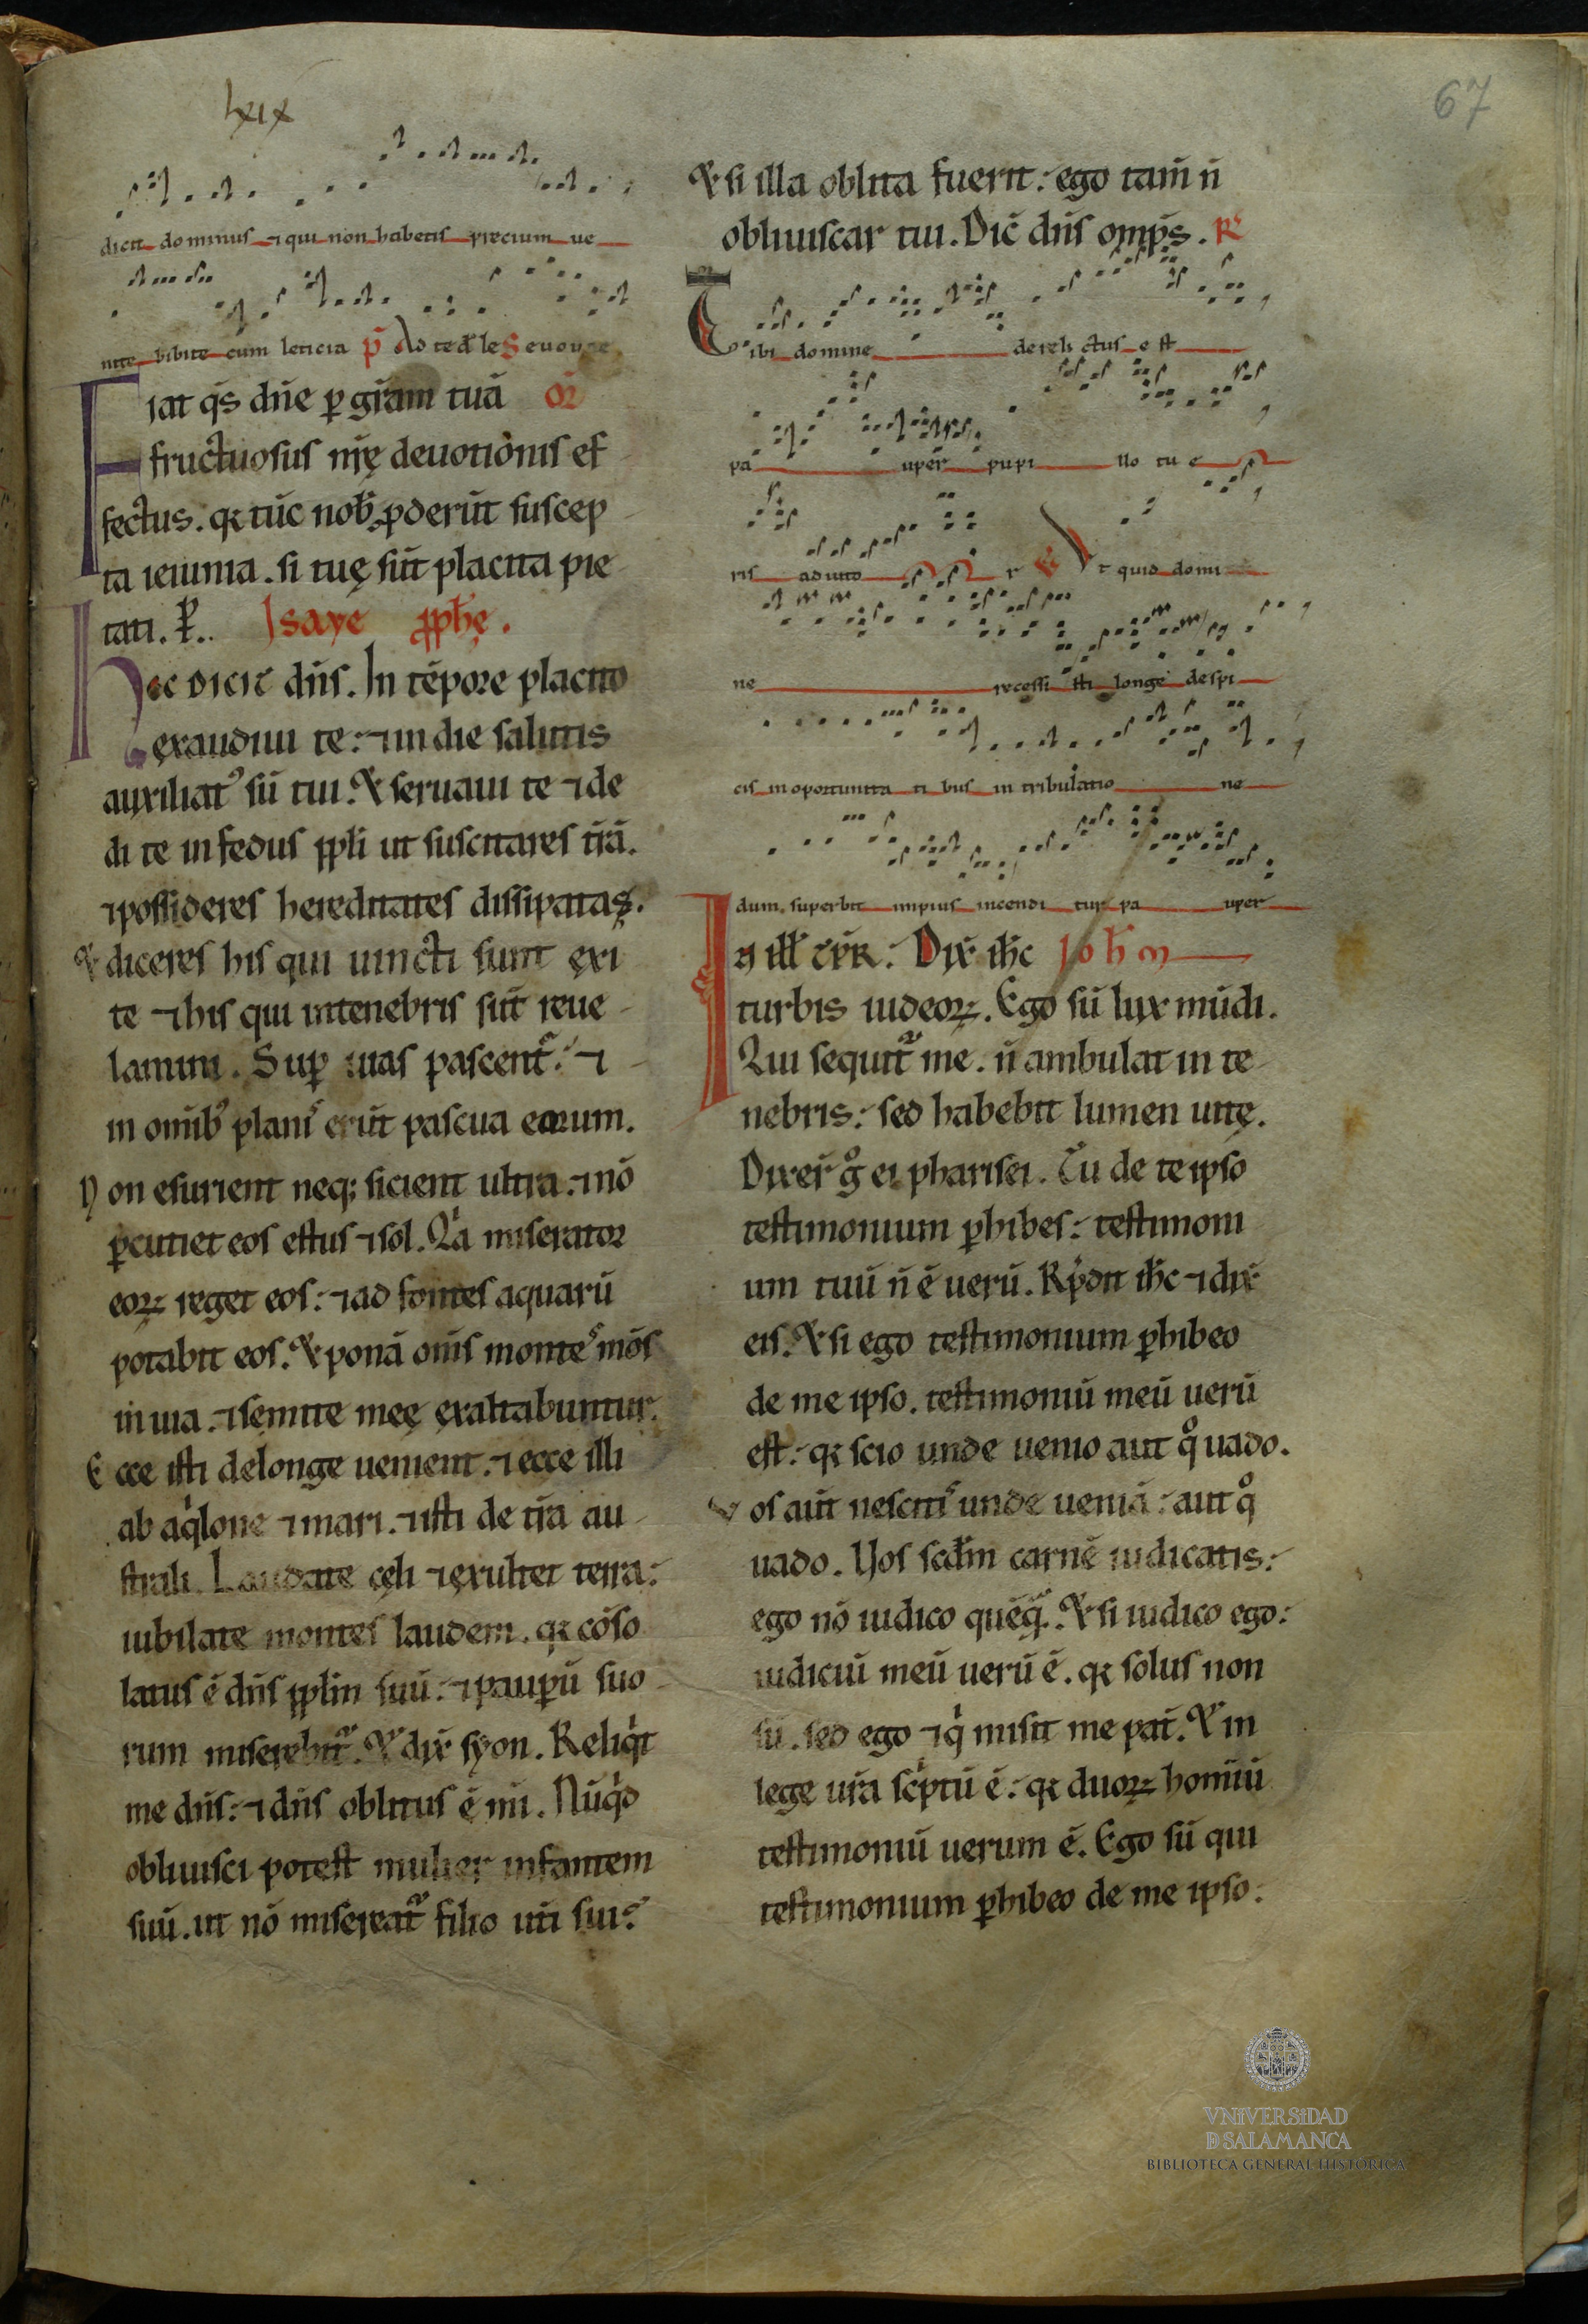 lxix
67
dicit dominus ⁊ qui non habetis precium ue
nite bibite cum leticia p̄ Ad te dn̄e le Seuouae
Fiat q̄s dn̄e ꝑ gr̄am tuā or̄
fructuosus nr̄ę deuotionis ef
fectus. qꝛ tūc nob̄ ꝓderūt suscep
ta ieiunia. si tuę sūt placita pie
tati. P̱. Isaye ꝓph̄ę.
Hęc dicit dn̄s. In tēpore placito
exaudiui te: ⁊ in die salutis
auxiliatꝰ sū tui. Et seruaui te ⁊ de
di te in fedus pp̄li ut suscitares tr̄ā.
⁊ possideres hereditates dissipatas.
Et diceres his qui uincti sunt exi
te ⁊ his qui in tenebris sūt reue
lamini. Suꝑ uias pascentᷣ: ⁊
in omībꝰ planis erūt pascua eorum.
Non esurient neq; sicient ultra: ⁊ nō
ꝑcutiet eos estus ⁊ sol. Qͥa miserator
eoꝝ reget eos: ⁊ ad fontes aquarū
potabit eos. Et ponā om̄s montes mōs
in uia. ⁊ semite meę exaltabuntur.
Ecce isti de longe uenient. ⁊ ecce illi
ab aqͥlone ⁊ mari. ⁊ isti de tr̄a au
strali. Laudate cęli ⁊ exultet terra:
iubilate montes laudem. qꝛ cōso
latus ē dn̄s pp̄lm suū: ⁊ pauꝑū suo
rum miserebitᷣ. Et dix̄ syon. Reliqͥt
me dn̄s: ⁊ dn̄s oblitus ē mi. Nūqͥd
obliuisci potest mulier infantem
suū. ut nō misereatᷣ filio ut̄i sui?
Et si illa oblita fuerit: ego tam̄ n̄
obliuiscar tui. Dic̄ dn̄s omp̄s. R̄
Tibi domine derelictus est
pa uper pupi llo tu e
ris adiuto r V̄ Ut quid domi
ne recessi sti longe despi
cis in oportunita ti bus in tribulatio ne
dum superbit impius incendi tur pa uper
In ill̄ tp̄r. Dix̄ ih̄c Joh̄m
turbis iudeoꝝ. Ego sū lux mūdi.
Qui sequitᷣ me. n̄ ambulat in te
nebris: sed habebit lumen uitę.
Dixer̄ gͦ ei pharisei. Tu de te ipso
testimonium ꝑhibes: testimoni
um tuū n̄ ē uerū. Rp̄dit ih̄c ⁊ dix̄
eis. Et si ego testimonium ꝑhibeo
de me ipso. testimoniū meū uerū
est: qꝛ scio unde uenio aut qͦ uado.
Vos aūt nescitis unde ueniā: aut qͦ
uado. Vos scd̄m carnē iudicatis:
ego nō iudico quēqᷓ. Et si iudico ego:
iudiciū meū uerū ē. qꝛ solus non
sū. sed ego ⁊ qͥ misit me pat̄. Et in
lege ur̄a scͥptū ē: qꝛ duoꝝ hominū
testimoniū uerum ē. Ego sū qui
testimonium ꝑhibeo de me ipso:
VNIVERSIDAD
D SALAMANCA
BIBLIOTECA GENERAL HISTÓRICA